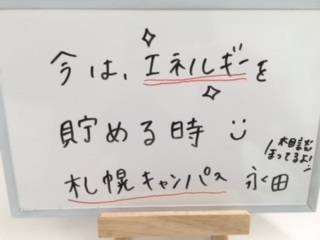 今は、エネルギーを
貯める時
相談
まってるよ!
札幌キャンパス 永田